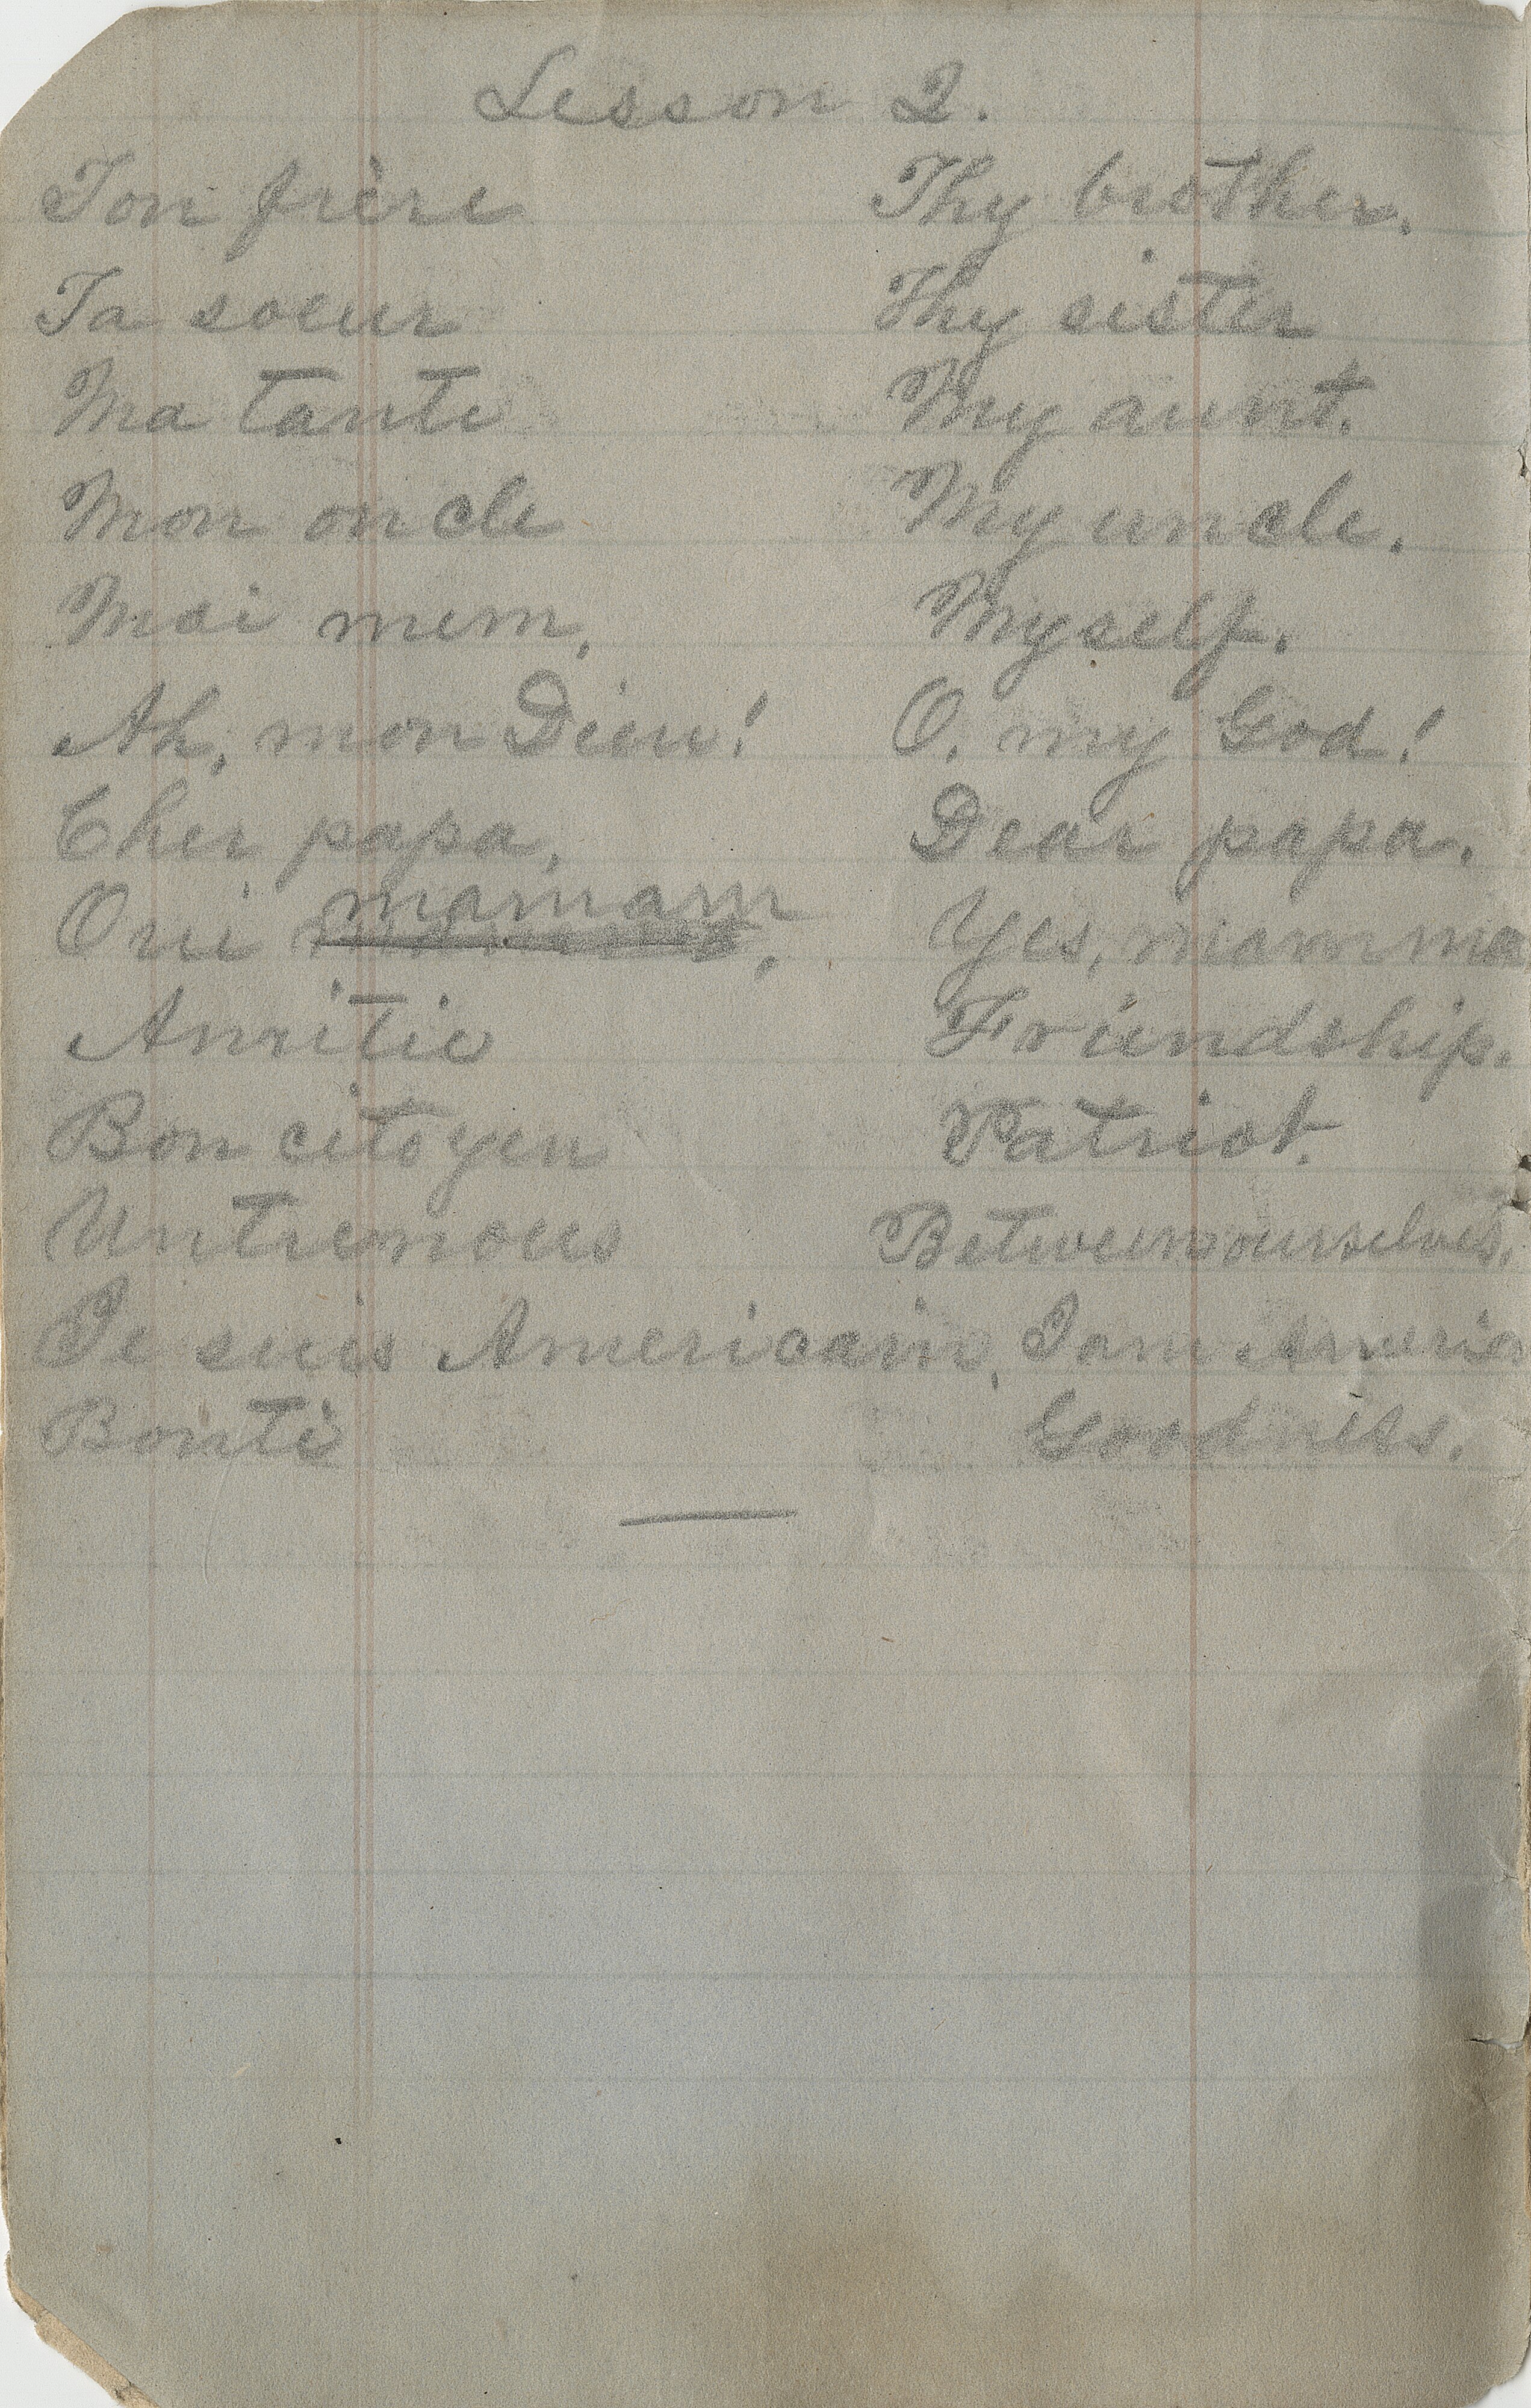 Lesson 2.
Ton frère Thy brother.
Ta soeur Thy sister
Ma tante My aunt.
Mon oncle My uncle.
Moi mem, Myself.
Ah, mon Dieu! O, my God!
Cher papa, Dear papa.
mamam
Oui, Yes, mamma
Amitie Friendship.
Bon citoyen Patriot.
Untrenous Between ourselves.
Je suis Americain, I am America
Bonté Goodness.